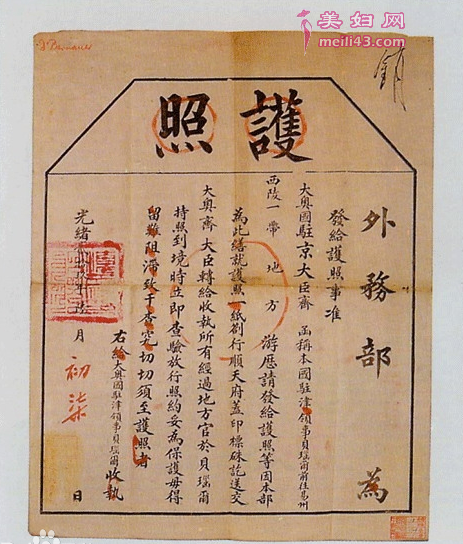 美妇网
meili43.com
銷
護照
外務部為
發給護照事准
大奧國駐京大臣齊函稱本國駐津領事貝瑙爾前往易州
西陵一帶地方游歷請發給護照等因本部
為此繕就護照一紙劄行順天府蓋印標硃訖送交
大奧齊大臣轉給收執所有經過地方官於貝瑙爾
持照到境時立即查驗放行照約妥為保護毋得
留難阻滯致干查究切切須至護照者
右給大奧國駐津領事貝瑙爾收執
光緒 月初柒日